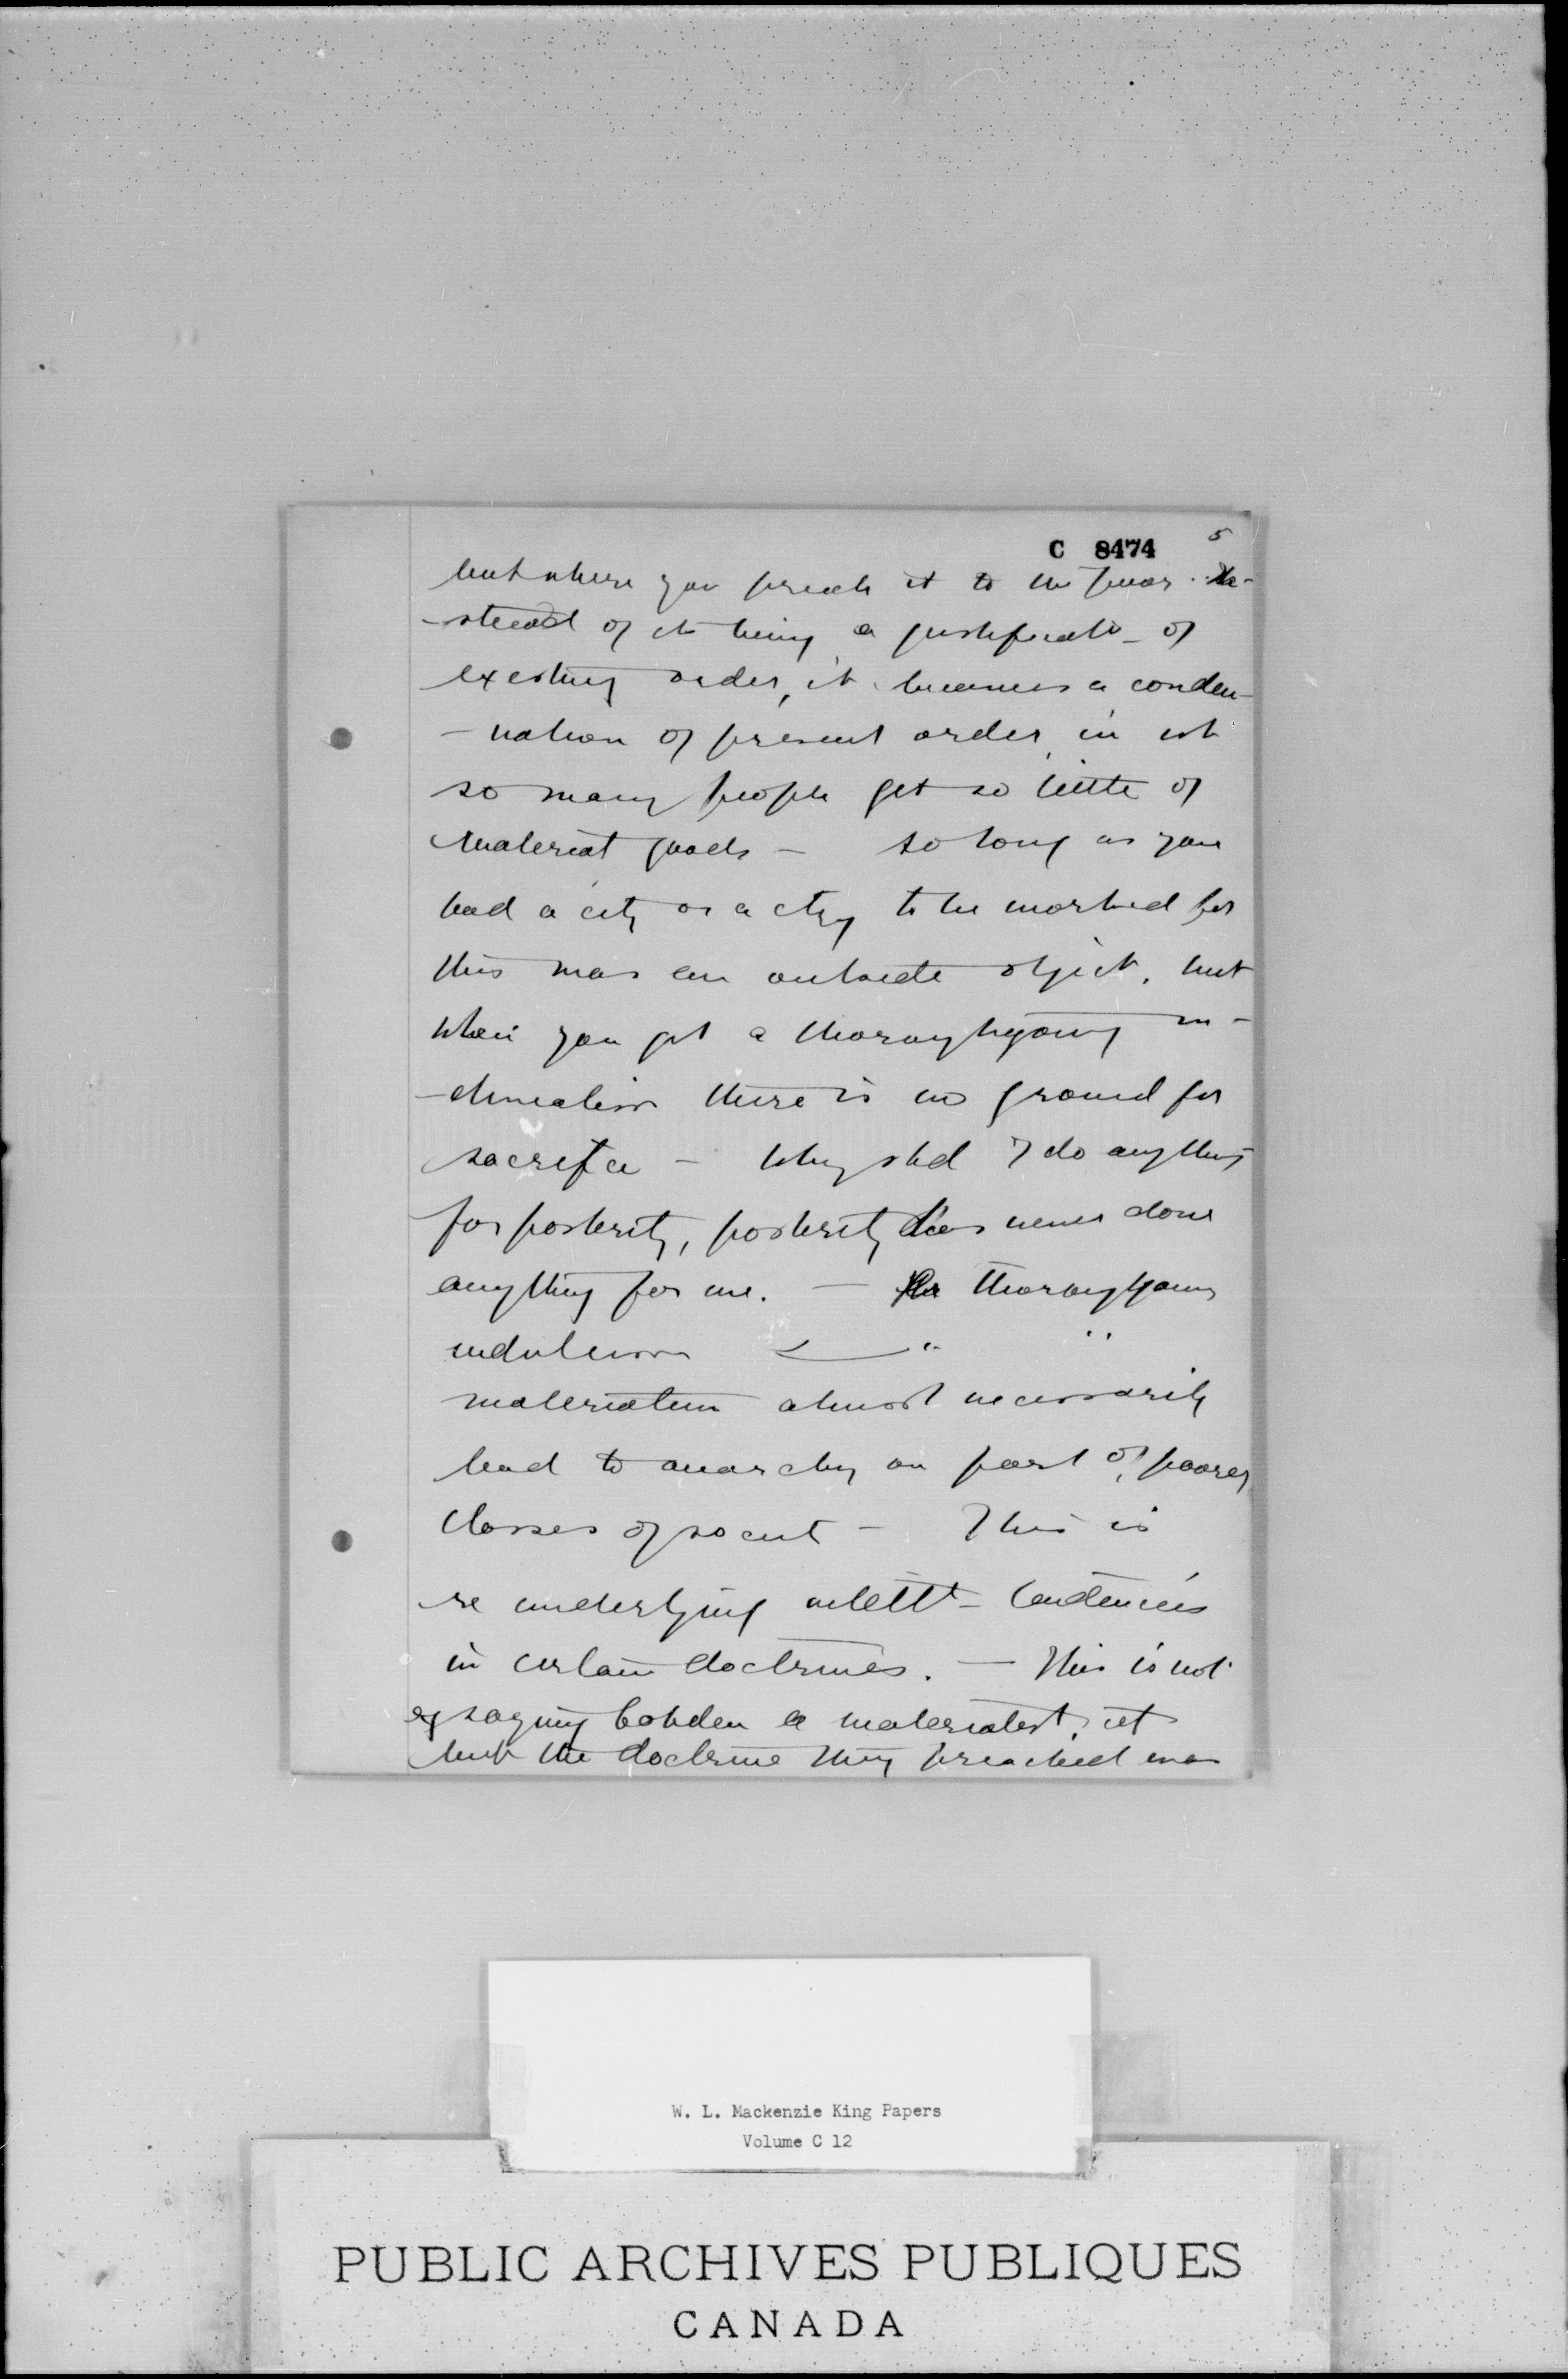 C 8474 5
but where you preach it to the poor. In-
-stead of its being a justificato- of
existing order, it becomes a condem-
-nation of present order, in wh
so many people get so little of
material goods - so long as you
had a city or a ctry to be worked for
this was an outside object. but
when you get a thoroughgoing in-
there is no ground for
sacrifice - Why shd I do anything
for posterity, posterity has never done
anything for me. - thoroughgoing
"
materialism almost necessarily
lead to anarchy on part of poorer
classes of societ - This is
re underlying tendencies
in certain doctrines. - This is not
saying Cobden a materialist,
but the doctrine they preached was
W. L. Mackenzie King Papers
Volume C 12
PUBLIC ARCHIVES PUBLIQUES
CANADA